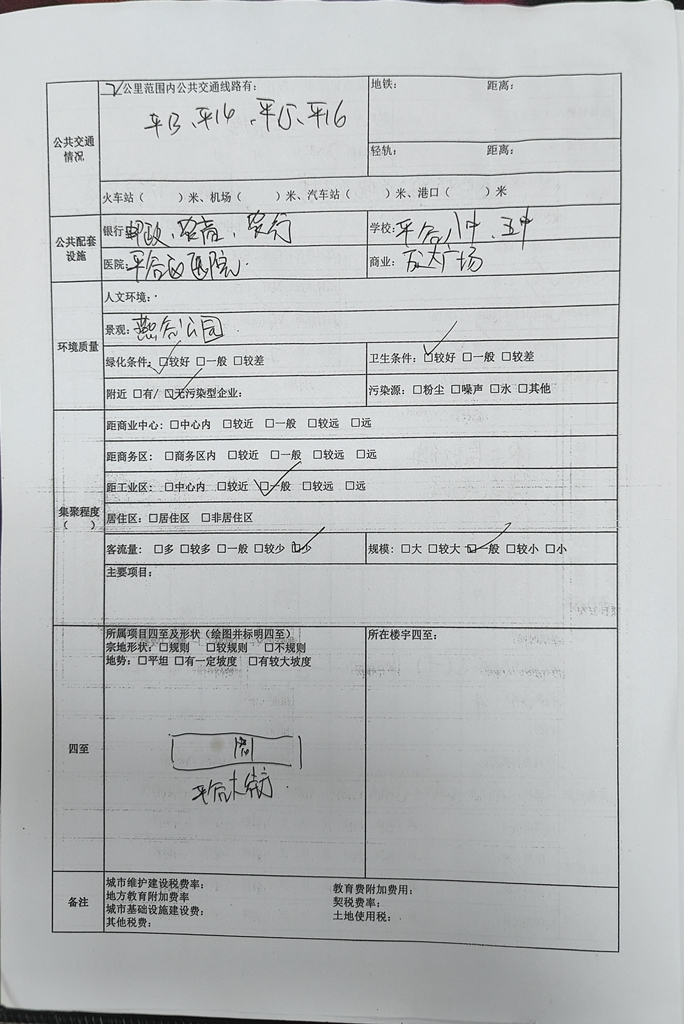 2公里范围内公共交通线路有:
地铁: 距离:
平13、平14、平15、平16
公共交通情况
轻轨: 距离:
火车站( )米、机场( )米、汽车站( )米、港口( )米
公共配套设施
银行:邮政、农商、农行
学校:平谷八中、五中
医院:平谷区医院.
商业:万达广场
环境质量
人文环境:
景观: 谷公园
绿化条件:□较好 □一般 □较差
卫生条件:□较好 □一般 □较差
附近 □有/ □无污染型企业:
污染源:□粉尘 □噪声 □水 □其他
集聚程度( )
距商业中心:□中心内 □较近 □一般 □较远 □远
距商务区:□商务区内 □较近 □一般 □较远 □远
距工业区:□中心内 □较近 □一般 □较远 □远
居住区:□居住区 □非居住区
客流量: □多 □较多 □一般 □较少 □少
规模:□大 □较大 □一般 □较小 □小
主要项目:
四至
所属项目四至及形状(绘图并标明四至)
宗地形状:□规则 □较规则 □不规则
地势:□平坦 □有一定坡度 □有较大坡度
平谷大街
所在楼宇四至:
备注
城市维护建设税费率:
教育费附加费用:
地方教育附加费率
契税费率:
城市基础设施建设费:
土地使用税:
其他税费: